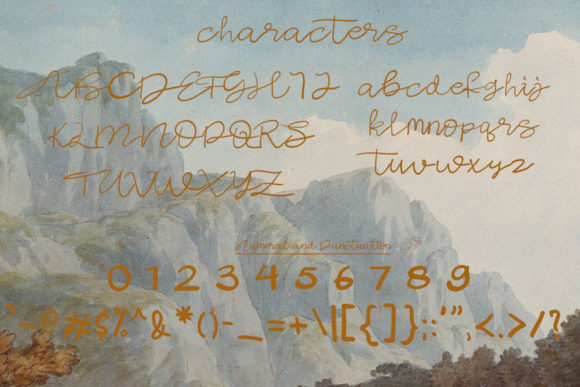 characters
ABCDEFGHIJ
KLMNOPQRS
TUVWXYZ
abcdefghij
klmnopqrs
tuvwxyz
Numeral and Punctuation
0 1 2 3 4 5 6 7 8 9
`~@#$%^&*()-_=+\|[{]};:'",<.>/?